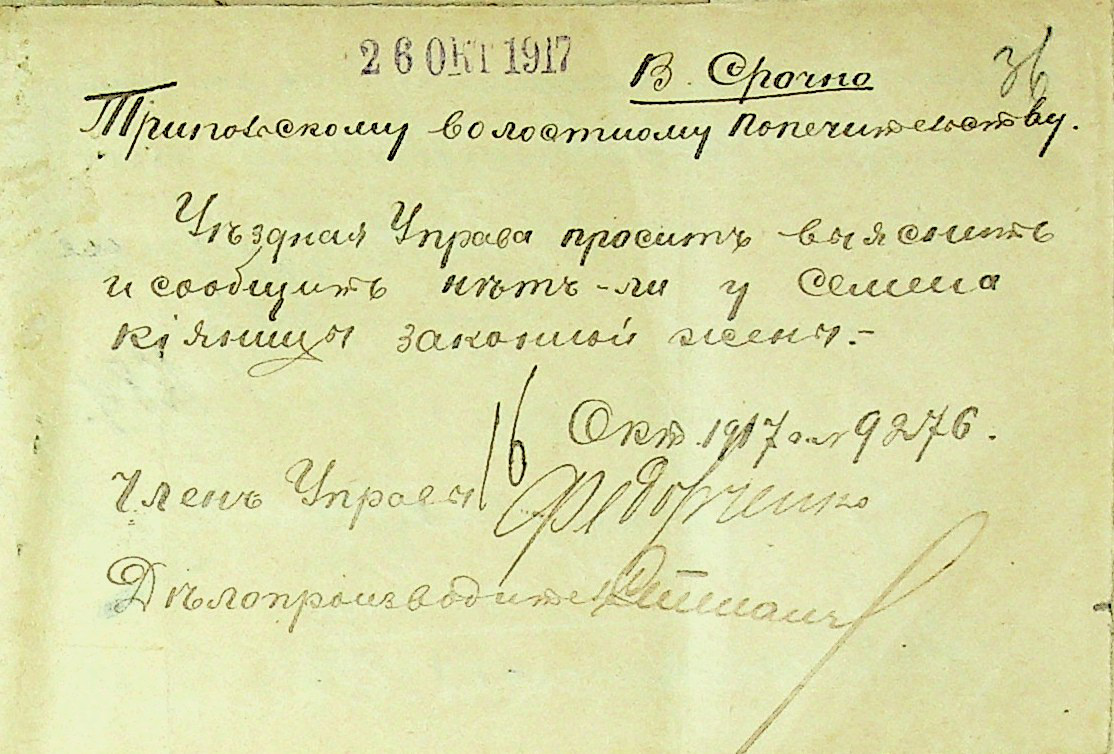 26 ОКТ 1917
В. Срочно
36
Трипольскому волостному попечительству.
Уѣздная Управа проситъ выяснить
и сообщить нѣтъ-ли у Семена
Кіяницы законной жены.-
16 Окт. 1917 г. № 9276.
Членъ Управы Федорченко
Дѣлопроизводитель